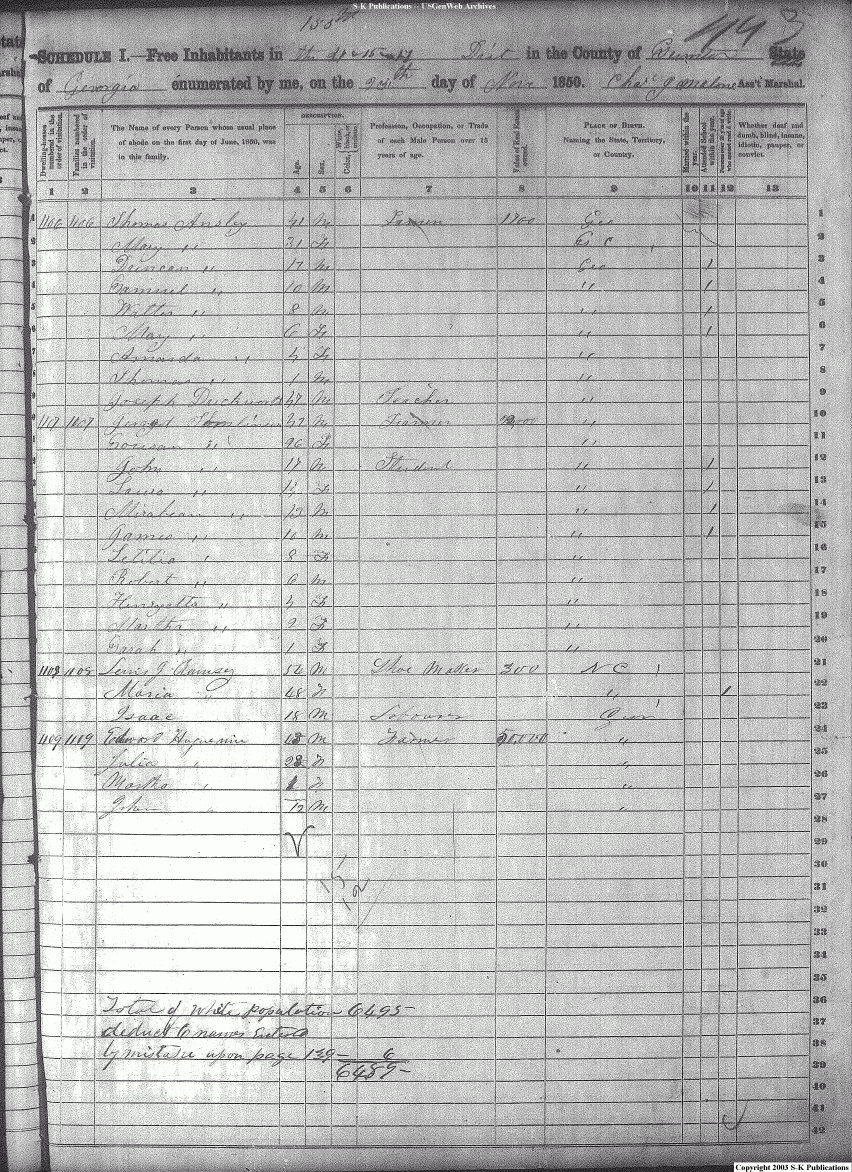 S-K Publications - USGenWeb Archives
443
SCHEDULE I.—Free Inhabitants in the Dist in the County of Sumter State
of Georgia enumerated by me, on the day of Nov 1850. Chas J Malone Ass't Marshal.
Dwelling-houses numbered in the order of visitation.
Families numbered in the order of visitation.
The Name of every Person whose usual place of abode on the first day of June, 1850, was in this family.
DESCRIPTION.
Age.
Sex.
White, black, or mulatto.
Color
Profession, Occupation, or Trade of each Male Person over 15 years of age.
Value of Real Estate owned.
PLACE OF BIRTH. Naming the State, Territory, or Country.
Married within the year.
Attended School within the year.
Persons over 20 y'rs of age who cannot read & write.
Whether deaf and dumb, blind, insane, idiotic, pauper, or convict.
1 2 3 4 5 6 7 8 9 10 11 12 13
1106 1106 Thomas Ansley 41 M Farmer 1700 Geo 1
Mary " 31 F 2
Duncan " 17 M Geo / 3
Samuel " 10 M " / 4
" 8 M " / 5
Mary " 6 F " / 6
Amanda " 4 F " 7
Thomas " 1 M " 8
Joseph Duckworth M Teacher " 9
1107 1107 Tomlinson 37 M Farmer " 10
" F " 11
John " 17 M Student " / 12
" F " / 13
Mirabeau " 12 M " / 14
James " 10 M " / 15
Letitia " 8 F " 16
Robert " 6 M " 17
Henryetta " 4 F " 18
Martha " 2 F " 19
Sarah " 1 F " 20
1108 1108 Lewis J Ramsey M Shoe Maker 300 N C 21
Maria " 48 F " / 22
Isaac 18 M Labourer Geo 23
1109 1109 Edward Huguenin M Farmer " 24
Julia " 28 F " 25
Martha " 1 F " 26
John " /12 M " 27
28
29
30
31
32
33
34
35
Total of White population 6495- 36
deduct 6 names Entered 37
by mistake upon page 139- 6 38
6489- 39
40
41
42
Copyright 2003 S-K Publications